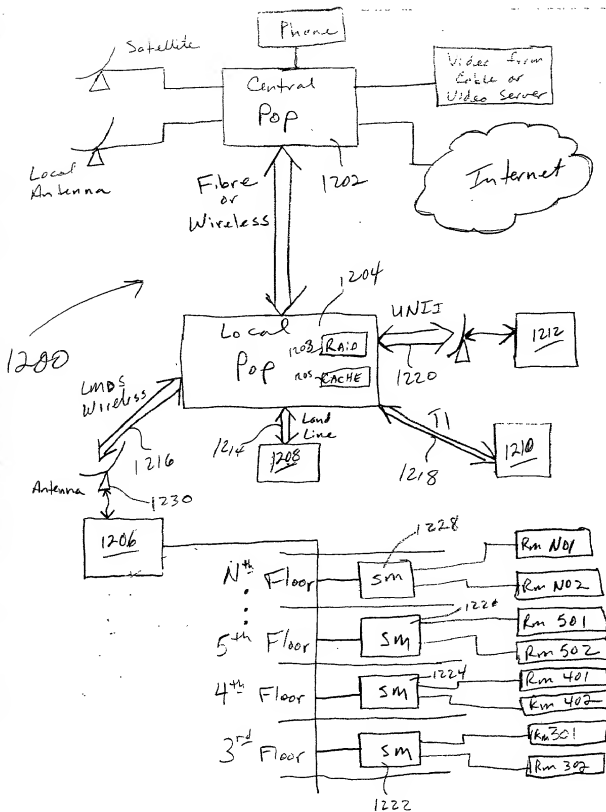 Phone
Satellite
Central
Pop
Video from
Cable or
Video Server
1202
Local
Antenna
Internet
Fibre
or
Wireless
1200
1204
Local
Pop
1208
RAID
CACHE
UNII
1220
1212
LMDS
Wireless
1216
1214
Land
Line
1208
T1
1218
1210
Antenna
1230
1206
1228
Nth Floor
SM
Rm N01
Rm N02
5th Floor
SM
Rm 501
Rm 502
1224
4th Floor
SM
Rm 401
Rm 402
3rd Floor
SM
Rm 301
Rm 302
1222